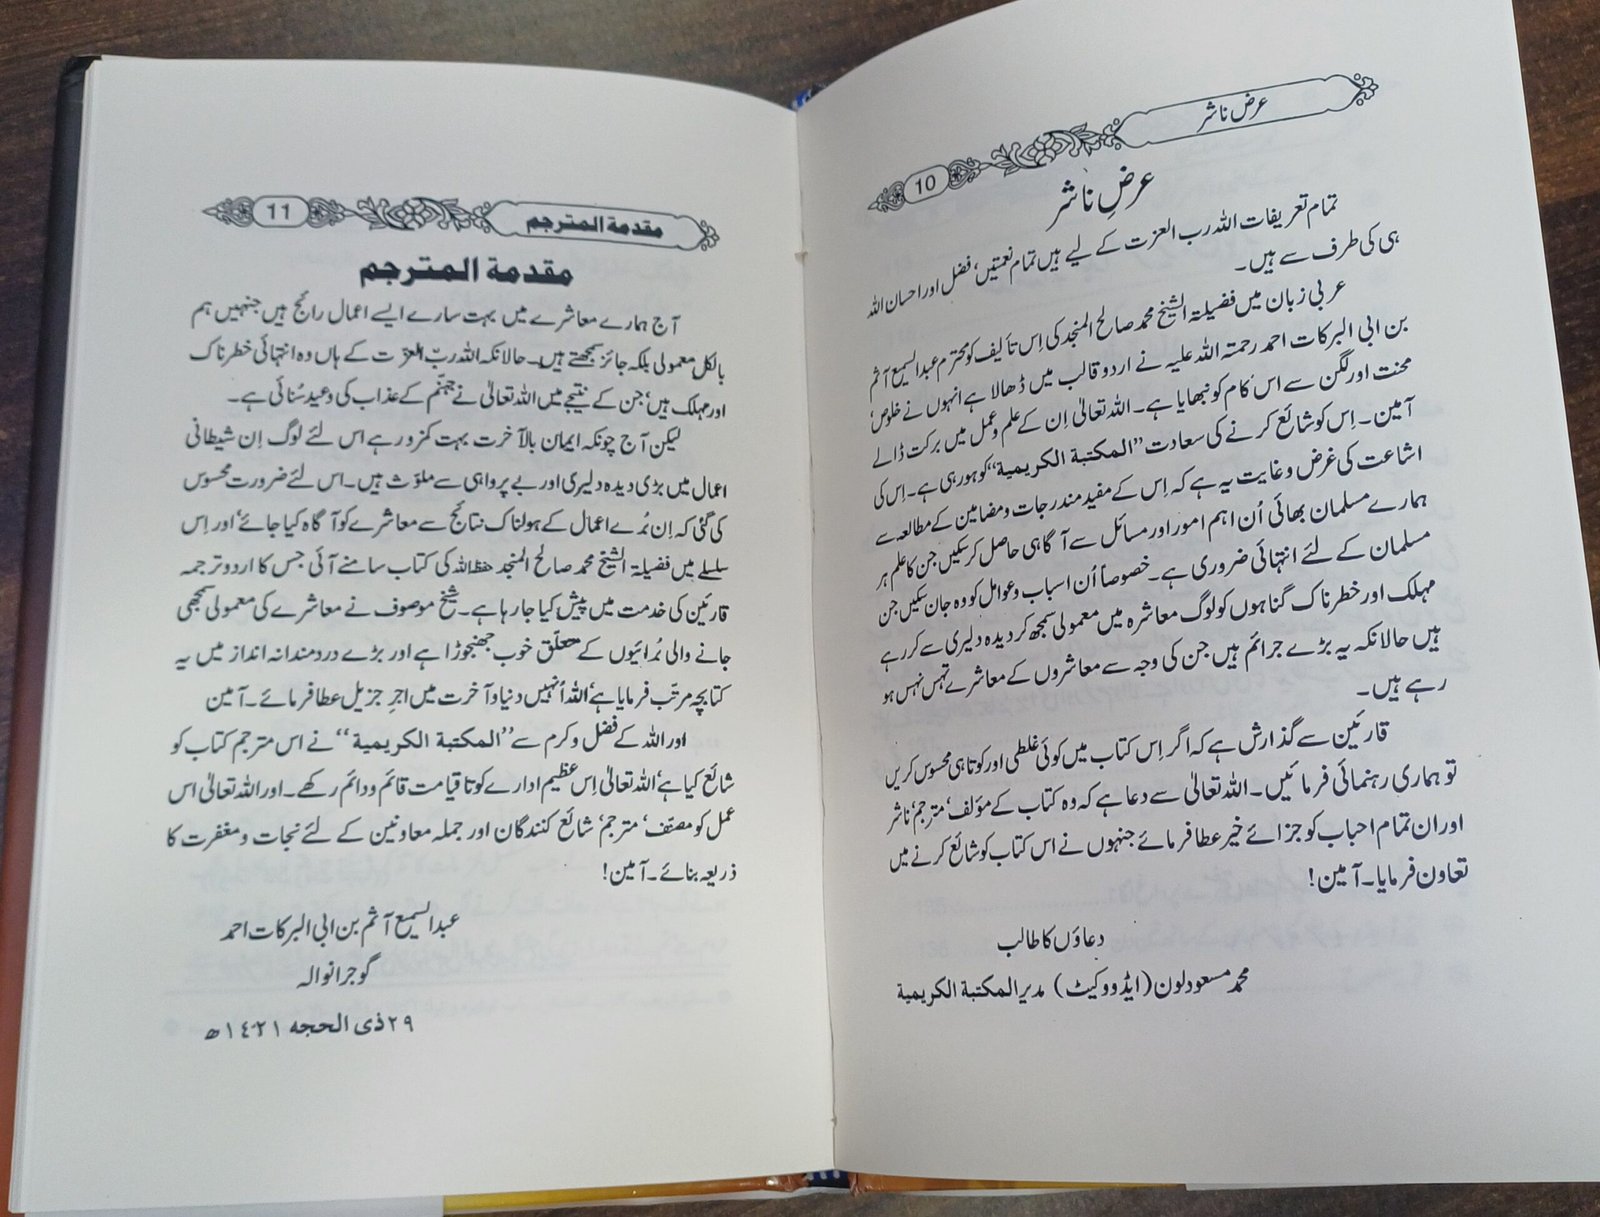 عرض ناشر
10
عرضِ ناشر
تمام تعریفات اللہ رب العزت کے لیے ہیں تمام نعمتیں‘ فضل اور احسان اللہ
ہی کی طرف سے ہیں۔
عربی زبان میں فضیلۃ الشیخ محمد صالح المنجد کی اِس تألیف کو محترم عبدالسمیع آثم
بن ابی البرکات احمد رحمتہ اللہ علیہ نے اردو قالب میں ڈھالا ہے انہوں نے خلوص‘
محنت اور لگن سے اس کام کو نبھایا ہے۔ اللہ تعالیٰ اِن کے علم و عمل میں برکت ڈالے
آمین۔ اِس کو شائع کرنے کی سعادت ”المکتبة الکریمیة“ کو ہو رہی ہے۔ اِس کی
اشاعت کی غرض و غایت یہ ہے کہ اِس کے مفید مندرجات و مضامین کے مطالعہ سے
ہمارے مسلمان بھائی اُن اہم امور اور مسائل سے آگاہی حاصل کر سکیں جن کا علم ہر
مسلمان کے لئے انتہائی ضروری ہے۔ خصوصاً اُن اسباب و عوامل کو وہ جان سکیں جن
مہلک اور خطرناک گناہوں کو لوگ معاشرہ میں معمولی سمجھ کر دیدہ دلیری سے کر رہے
ہیں حالانکہ یہ بڑے جرائم ہیں جن کی وجہ سے معاشروں کے معاشرے تہس نہس ہو
رہے ہیں۔
قارئین سے گذارش ہے کہ اگر اِس کتاب میں کوئی غلطی اور کوتاہی محسوس کریں
تو ہماری رہنمائی فرمائیں۔ اللہ تعالیٰ سے دعا ہے کہ وہ کتاب کے مؤلف‘ مترجم‘ ناشر
اور ان تمام احباب کو جزائے خیر عطا فرمائے جنہوں نے اس کتاب کو شائع کرنے میں
تعاون فرمایا۔ آمین!
دعاؤں کا طالب
محمد مسعود لون (ایڈووکیٹ) مدیر المکتبة الکریمیة
مقدمة المترجم
11
مقدمة المترجم
آج ہمارے معاشرے میں بہت سارے ایسے اعمال رائج ہیں جنہیں ہم
بالکل معمولی بلکہ جائز سمجھتے ہیں۔ حالانکہ اللہ ربّ العزّت کے ہاں وہ انتہائی خطرناک
اور مہلک ہیں‘ جن کے نتیجے میں اللہ تعالیٰ نے جہنّم کے عذاب کی وعید سُنائی ہے۔
لیکن آج چونکہ ایمان بالآخرت بہت کمزور ہے اس لئے لوگ اِن شیطانی
اعمال میں بڑی دیدہ دلیری اور بے پرواہی سے ملوّث ہیں۔ اس لئے ضرورت محسوس
کی گئی کہ اِن بُرے اعمال کے ہولناک نتائج سے معاشرے کو آگاہ کیا جائے‘ اور اِس
سلسلے میں فضیلۃ الشیخ محمد صالح المنجد حفظہ اللہ کی کتاب سامنے آئی جس کا اردو ترجمہ
قارئین کی خدمت میں پیش کیا جا رہا ہے۔ شیخ موصوف نے معاشرے کی معمولی سمجھی
جانے والی بُرائیوں کے متعلّق خوب جھنجوڑا ہے اور بڑے دردمندانہ انداز میں یہ
کتابچہ مرتّب فرمایا ہے‘ اللہ اُنہیں دنیا و آخرت میں اجرِ جزیل عطا فرمائے۔ آمین
اور اللہ کے فضل و کرم سے ”المکتبة الکریمیة“ نے اس مترجم کتاب کو
شائع کیا ہے‘ اللہ تعالیٰ اِس عظیم ادارے کو تا قیامت قائم و دائم رکھے۔ اور اللہ تعالیٰ اس
عمل کو مصنّف‘ مترجم‘ شائع کنندگان اور جملہ معاونین کے لئے نجات و مغفرت کا
ذریعہ بنائے۔ آمین!
عبدالسمیع آثم بن ابی البرکات احمد
گوجرانوالہ
٢٩ ذی الحجه ١٤٢١ھ